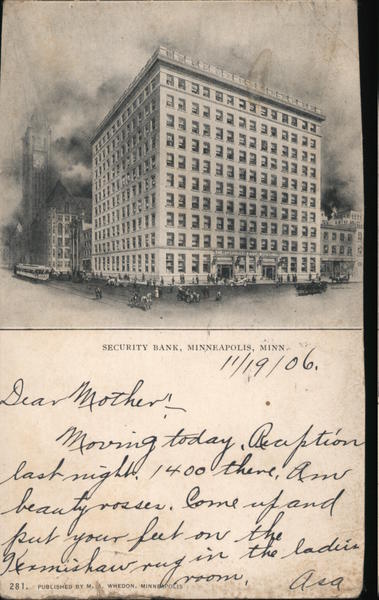 SECURITY BANK, MINNEAPOLIS, MINN.
11/19/06.
Dear Mother!—
Moving today. Reception
last night. 1400 there. Am
beauty rosses. Come up and
put your feet on the
Kermishaw rug in the ladies
room. Asa
281. PUBLISHED BY M. A. WHEDON, MINNEAPOLIS